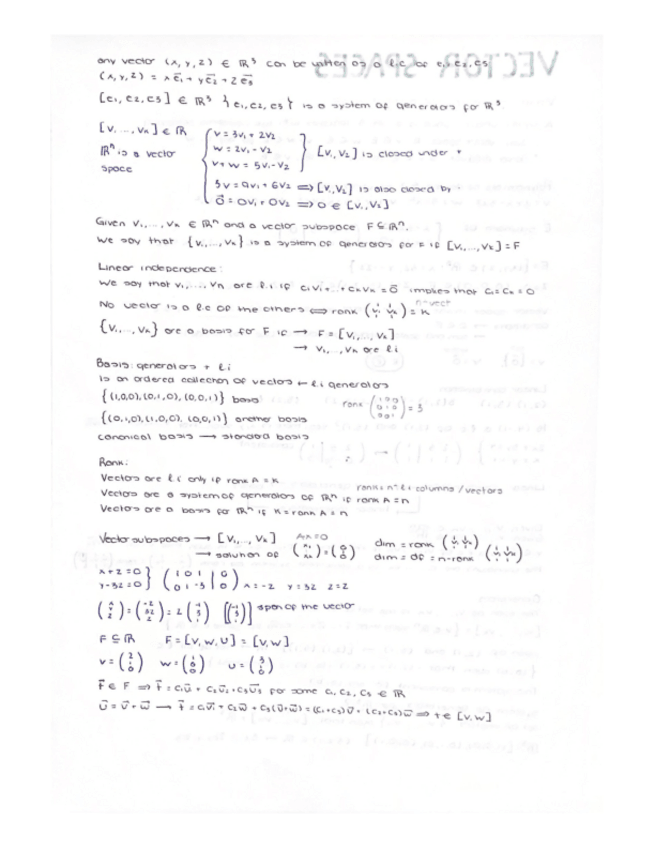 VECTOR SPACES
any vector (x, y, z) ∈ ℝ³ can be written as a l.c. of e₁, e₂, e₃
(x, y, z) = x e⃗₁ + y e⃗₂ + z e⃗₃
[e₁, e₂, e₃] ∈ ℝ³ {e₁, e₂, e₃} is a system of generators for ℝ³
[v₁, ..., vₖ] ∈ ℝ
ℝⁿ is a vector space
v = 3v₁ + 2v₂
w = 2v₁ - v₂
v + w = 5v₁ - v₂
[v₁, v₂] is closed under +
3v = 9v₁ + 6v₂ ⟹ [v₁, v₂] is also closed by ·
0⃗ = 0v₁ + 0v₂ ⟹ 0 ∈ [v₁, v₂]
Given v₁, ..., vₖ ∈ ℝⁿ and a vector subspace F ⊆ ℝⁿ.
we say that {v₁, ..., vₖ} is a system of generators for F if [v₁, ..., vₖ] = F
Linear independence:
we say that v₁, ..., vₙ are l.i if c₁v₁ + ... + cₖvₖ = 0⃗ implies that c₁ = cₖ = 0
No vector is a l.c of the others ⟺ rank (v₁ vₖ) = k
n-vect
{v₁, ..., vₖ} are a basis for F if → F = [v₁, ..., vₖ]
→ v₁, ..., vₖ are l.i
Basis: generators + l.i
is an ordered collection of vectors ← l.i generators
{(1,0,0), (0,1,0), (0,0,1)} basis
rank (1 0 0 / 0 1 0 / 0 0 1) = 3
{(0,1,0), (1,0,0), (0,0,1)} another basis
canonical basis → standard basis
Rank:
Vectors are l.i only if rank A = k
rank = n° l.i columns / vectors
Vectors are a system of generators of ℝⁿ if rank A = n
Vectors are a basis for ℝⁿ if k = rank A = n
Vector subspaces → [v₁, ..., vₖ] dim = rank (v₁ vₖ)
A·x = 0
→ solution of (x₁ / xₙ) = (0 / 0) dim = DF = n - rank (v₁ vₖ)
x + z = 0
y - 3z = 0
(1 0 1 | 0 / 0 1 -3 | 0) x = -z y = 3z z = z
(x / y / z) = (-z / 3z / z) = z (-1 / 3 / 1) [(-1 / 3 / 1)] span of the vector
F ⊆ ℝ F = [v, w, u] = [v, w]
v = (2 / 1 / 0) w = (1 / 0 / 0) u = (3 / 1 / 0)
f⃗ ∈ F ⟹ f⃗ = c₁u⃗ + c₂v⃗₂ + c₃v⃗₃ for some c₁, c₂, c₃ ∈ ℝ
u⃗ = v⃗ + w⃗ → f⃗ = c₁v⃗ + c₂w⃗ + c₃(v⃗ + w⃗) = (c₁ + c₃)v⃗ + (c₂ + c₃)w⃗ ⟹ f ∈ [v, w]